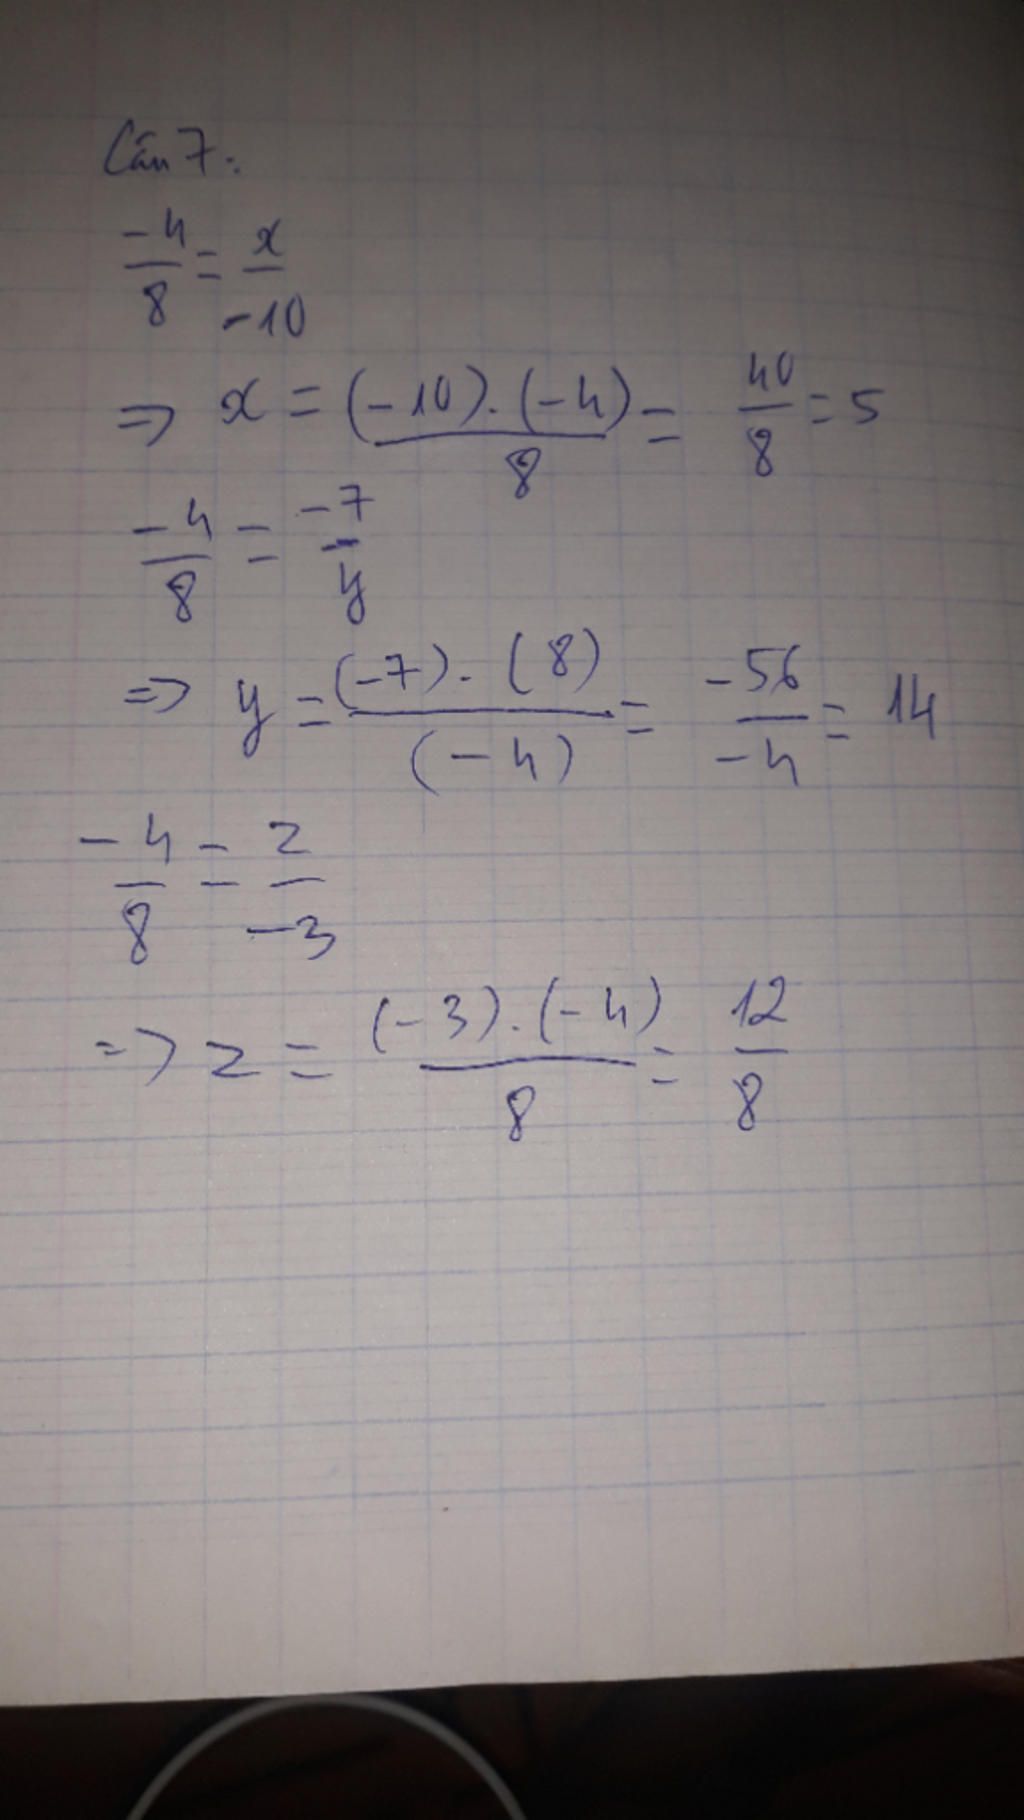 Câu 7:
-4/8 = x/-10
=> x = (-10).(-4)/8 = 40/8 = 5
-4/8 = -7/y
=> y = (-7).(8)/(-4) = -56/-4 = 14
-4/8 = z/-3
=> z = (-3).(-4)/8 = 12/8